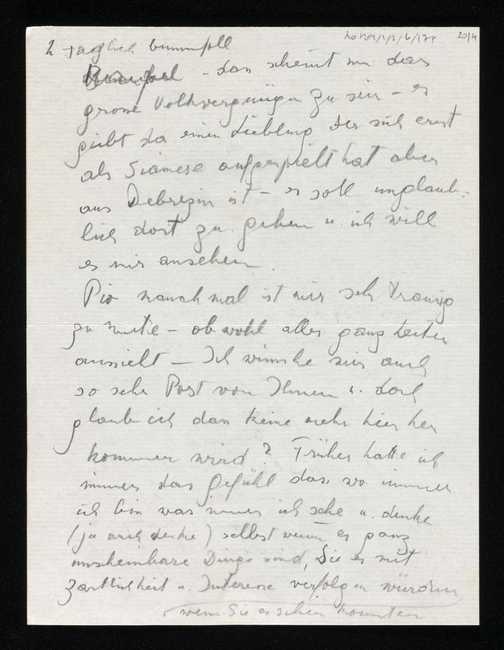 2 täglich bummvoll
– das scheint nun das
grosse Volksvergnügen zu sein – es
giebt da einen Liebling der sich erst
als Siamese aufgespielt hat aber
aus Debrezin ist – es soll unglaub-
lich dort zu gehen u. ich will
es mir ansehen.
manchmal ist mir sehr traurig
zu mute – obwohl alles ganz heiter
aussieht – Ich wünsche mir auch
so sehr Post von Ihnen u. doch
glaube ich dass keine mehr hier her
kommen wird? Früher hatte ich
immer das Gefühl dass wo immer
ich bin was immer ich sehe u. denke
(ja auch denke) selbst wenn es ganz
unscheinbare Dinge sind, Sie es mit
Zärtlichkeit u. Interesse verfolgen würden
wenn Sie es sehen könnten